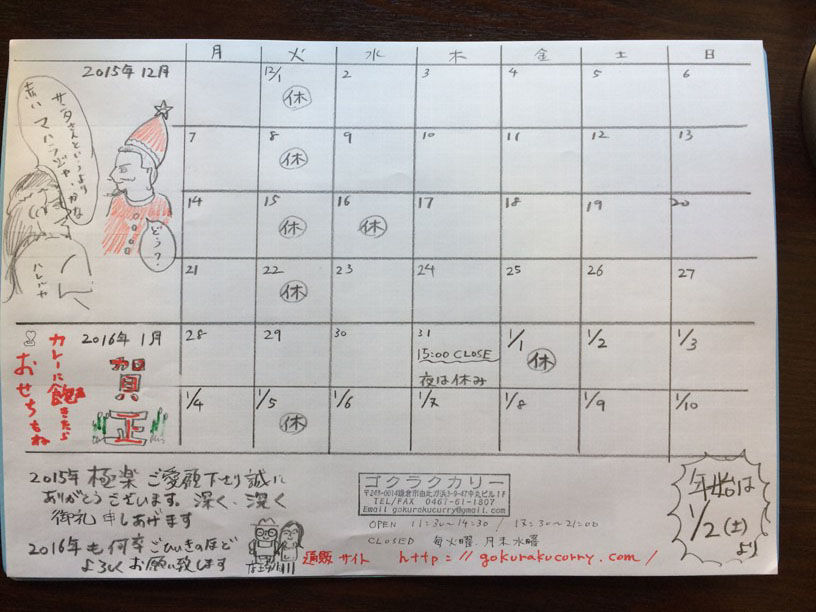 月 火 水 木 金 土 日
2015年12月
12/1 2 3 4 5 6
休
サンタさんというより
赤い マハラジャ・かな
どう?
ハレルヤ
7 8 9 10 11 12 13
休
14 15 16 17 18 19 20
休 休
21 22 23 24 25 26 27
休
2016年1月
賀正
カレーに飽きたら
おせちもね
28 29 30 31 1/1 1/2 1/3
15:00 CLOSE
夜は休み
休
1/4 1/5 1/6 1/7 1/8 1/9 1/10
休
2015年 極楽 ご愛顧下さり誠に
ありがとうございます。深く、深く
御礼申しあげます
2016年も何卒ごひいきのほど
よろしくお願い致します
ゴクラクカリー
〒248-0014鎌倉市由比ガ浜3-9-47中丸ビル1F
TEL/FAX 0467-61-1807
Email gokurakucurry@gmail.com
OPEN 11:30~14:30 / 18:30~21:00
CLOSED 毎火曜、月末水曜
通販サイト http://gokurakucurry.com/
年始は
1/2(土)
より